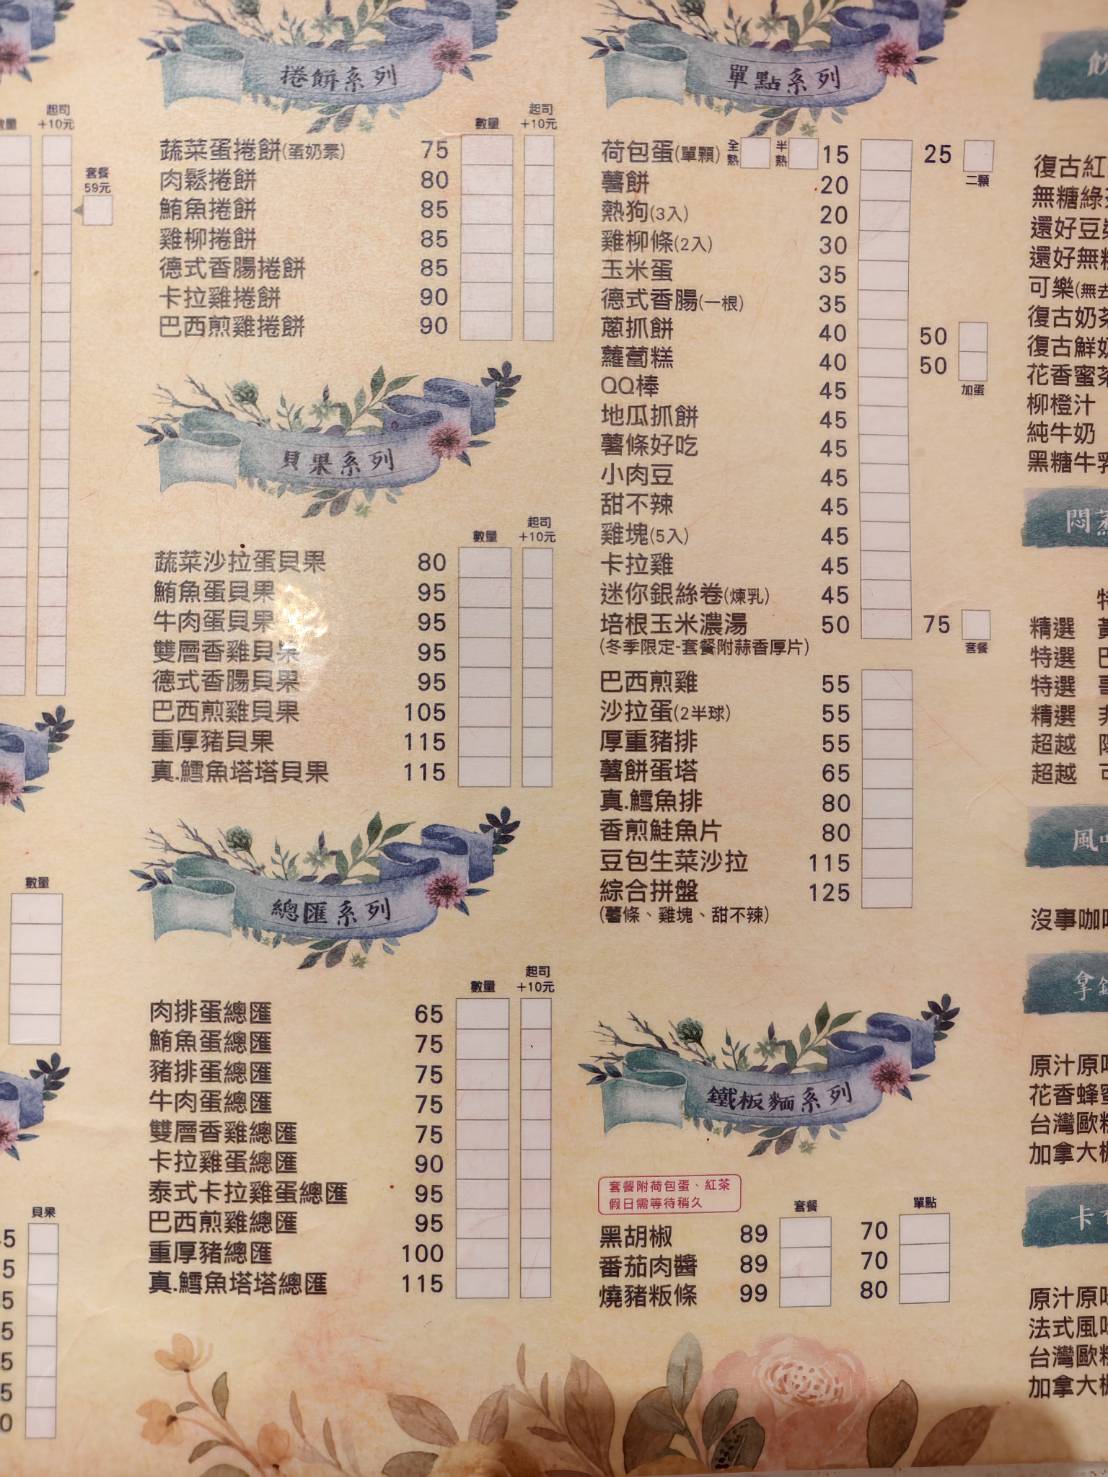 數量
起司
+10元
套餐
59元
數量
5
5
5
5
5
5
0
貝果
捲餅系列
數量
起司
+10元
蔬菜蛋捲餅(蛋奶素) 75
肉鬆捲餅 80
鮪魚捲餅 85
雞柳捲餅 85
德式香腸捲餅 85
卡拉雞捲餅 90
巴西煎雞捲餅 90
貝果系列
數量
起司
+10元
蔬菜沙拉蛋貝果 80
鮪魚蛋貝果 95
牛肉蛋貝果 95
雙層香雞貝果 95
德式香腸貝果 95
巴西煎雞貝果 105
重厚豬貝果 115
真.鱈魚塔塔貝果 115
總匯系列
數量
起司
+10元
肉排蛋總匯 65
鮪魚蛋總匯 75
豬排蛋總匯 75
牛肉蛋總匯 75
雙層香雞總匯 75
卡拉雞蛋總匯 90
泰式卡拉雞蛋總匯 95
巴西煎雞總匯 95
重厚豬總匯 100
真.鱈魚塔塔總匯 115
單點系列
荷包蛋(單顆) 全熟 半熟 15 25 二顆
薯餅 20
熱狗(3入) 20
雞柳條(2入) 30
玉米蛋 35
德式香腸(一根) 35
蔥抓餅 40 50
蘿蔔糕 40 50 加蛋
QQ棒 45
地瓜抓餅 45
薯條好吃 45
小肉豆 45
甜不辣 45
雞塊(5入) 45
卡拉雞 45
迷你銀絲卷(煉乳) 45
培根玉米濃湯 50 75 套餐
(冬季限定-套餐附蒜香厚片)
巴西煎雞 55
沙拉蛋(2半球) 55
厚重豬排 55
薯餅蛋塔 65
真.鱈魚排 80
香煎鮭魚片 80
豆包生菜沙拉 115
綜合拼盤 125
(薯條、雞塊、甜不辣)
鐵板麵系列
套餐附荷包蛋、紅茶
假日需等待稍久
套餐 單點
黑胡椒 89 70
番茄肉醬 89 70
燒豬粄條 99 80
飲
復古紅
無糖綠
還好豆
還好無
可樂(無
復古奶
復古鮮
花香蜜
柳橙汁
純牛奶
黑糖牛
悶
特
精選
特選
特選
精選
超越
超越
風
沒事咖
拿
原汁原
花香蜂
台灣歐
加拿大
卡
原汁原
法式風
台灣歐
加拿大